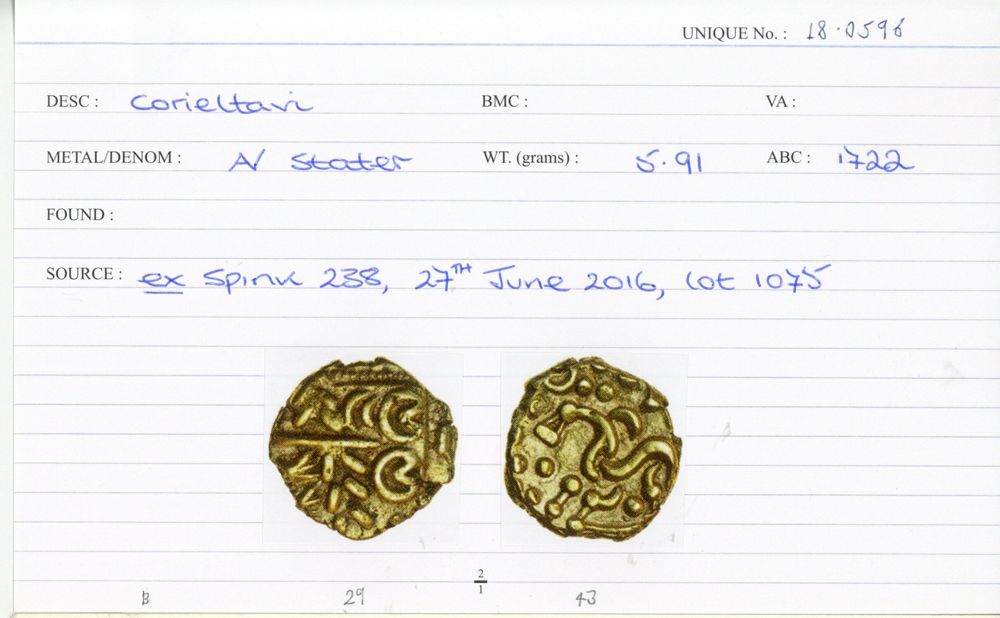 UNIQUE No. : 18.0596
DESC : Corieltavi BMC : VA :
METAL/DENOM : AV Stater WT. (grams) : 5.91 ABC : 1722
FOUND :
SOURCE : ex Spink 238, 27TH June 2016, lot 1075
2
1
B 29 43